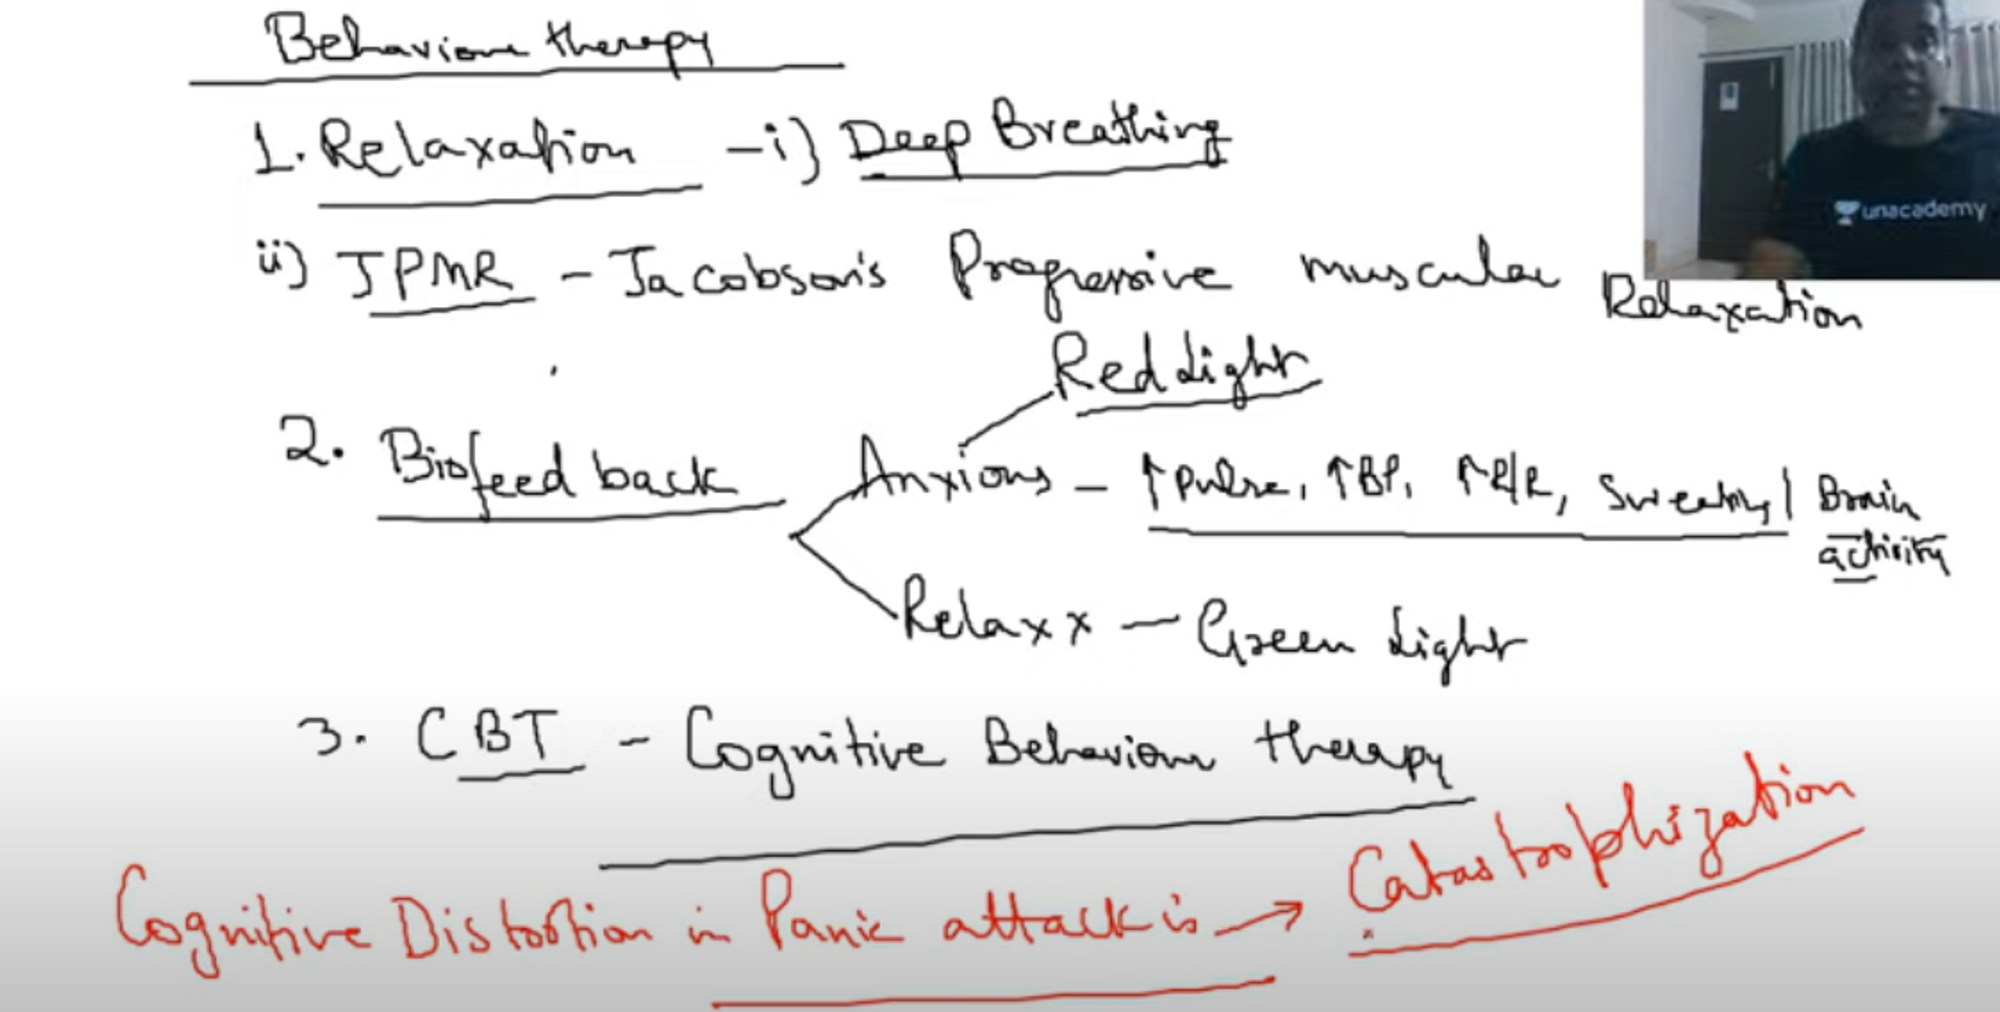 Behaviour therapy
1. Relaxation - i) Deep Breathing
unacademy
ii) JPMR - Jacobson's Progressive muscular Relaxation
Red Light
2. Biofeed back
Anxious - ↑ Pulse, ↑BP, ↑R/R, Sweating / Brain activity
Relaxx - Green Light
3. CBT - Cognitive Behaviour therapy
Cognitive Distortion in Panic attack is → Catastrophization